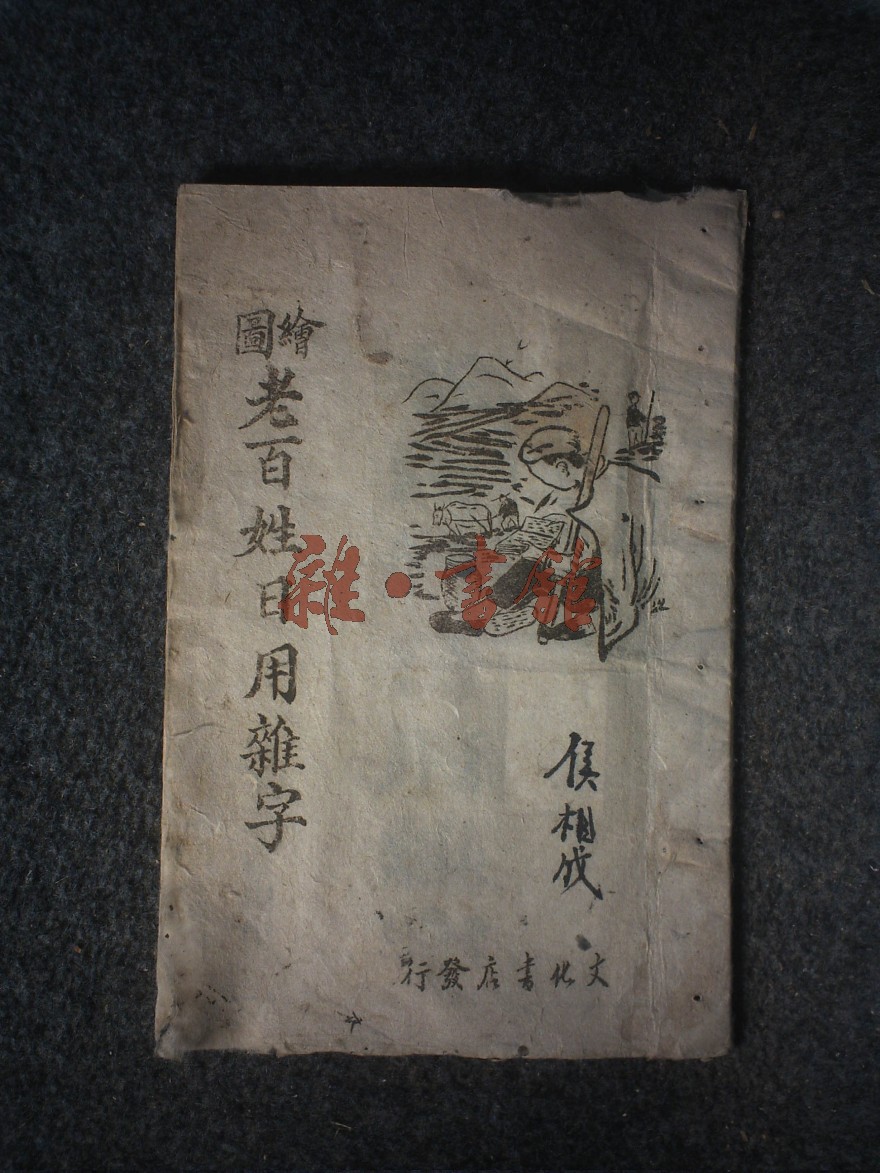 繪圖
老百姓日用雜字
雜·書館
侯相成
文化書店發行